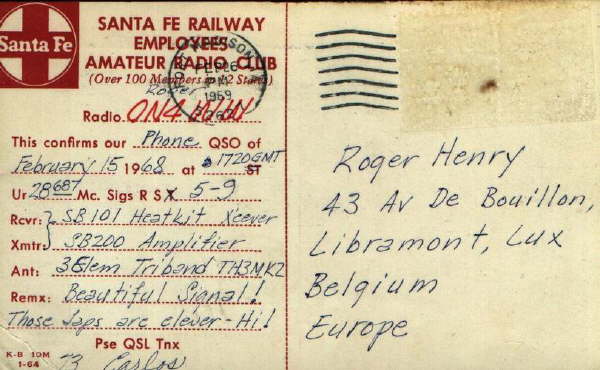 Santa Fe
SANTA FE RAILWAY
EMPLOYEES
AMATEUR RADIO CLUB
(Over 100 Members in 12 States)
Roger
Radio
This confirms our Phone QSO of
February 15 1968 at 1720 GMT
ST
Ur 28687 Mc. Sigs R S X 5-9
Rcvr: SB101 Heatkit Xcever
Xmtr: SB200 Amplifier
Ant: 3Elem Triband TH3MK2
Remx: Beautiful Signal!
Those Japs are clever - Hi!
Pse QSL Tnx
73 Carlos
K-B 10M
1-64
1969
Roger Henry
43 Av De Bouillon,
Libramont, Lux
Belgium
Europe